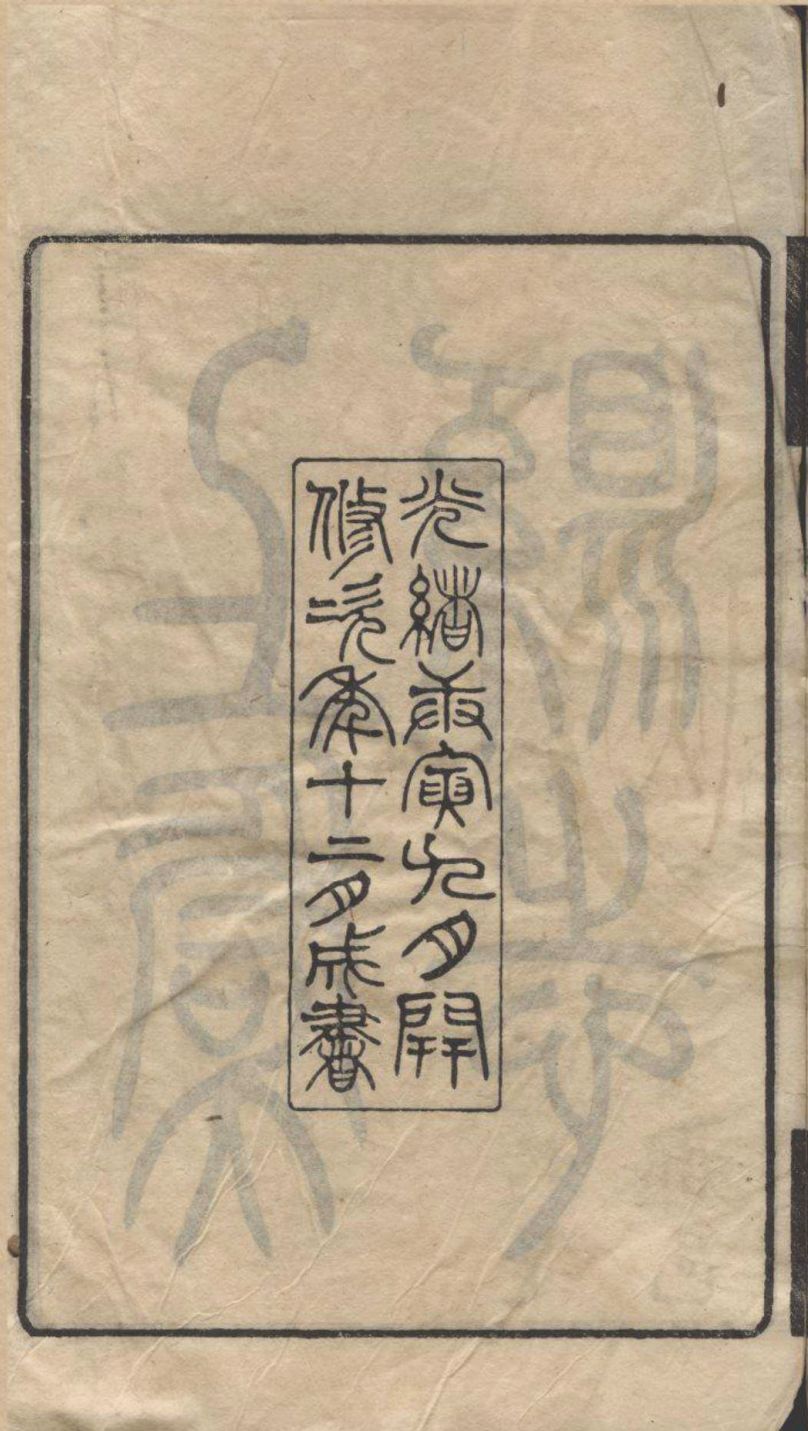 光緒庚寅九月開
修次年十二月成書